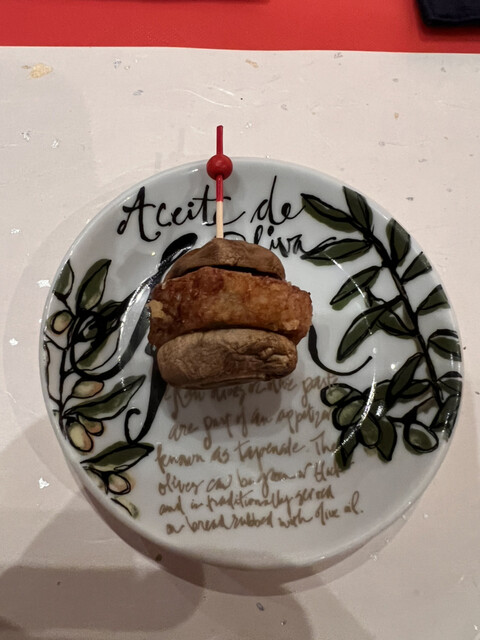 Aceite de
Oliva
olive paste
are part of an appetizer
known as tapenade. The
olives can be green or black
and is traditionally served
on bread rubbed with olive oil.